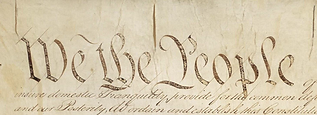 We the People of
insure domestic Tranquility, provide for the common
and our Posterity, do ordain and establish this Constitution